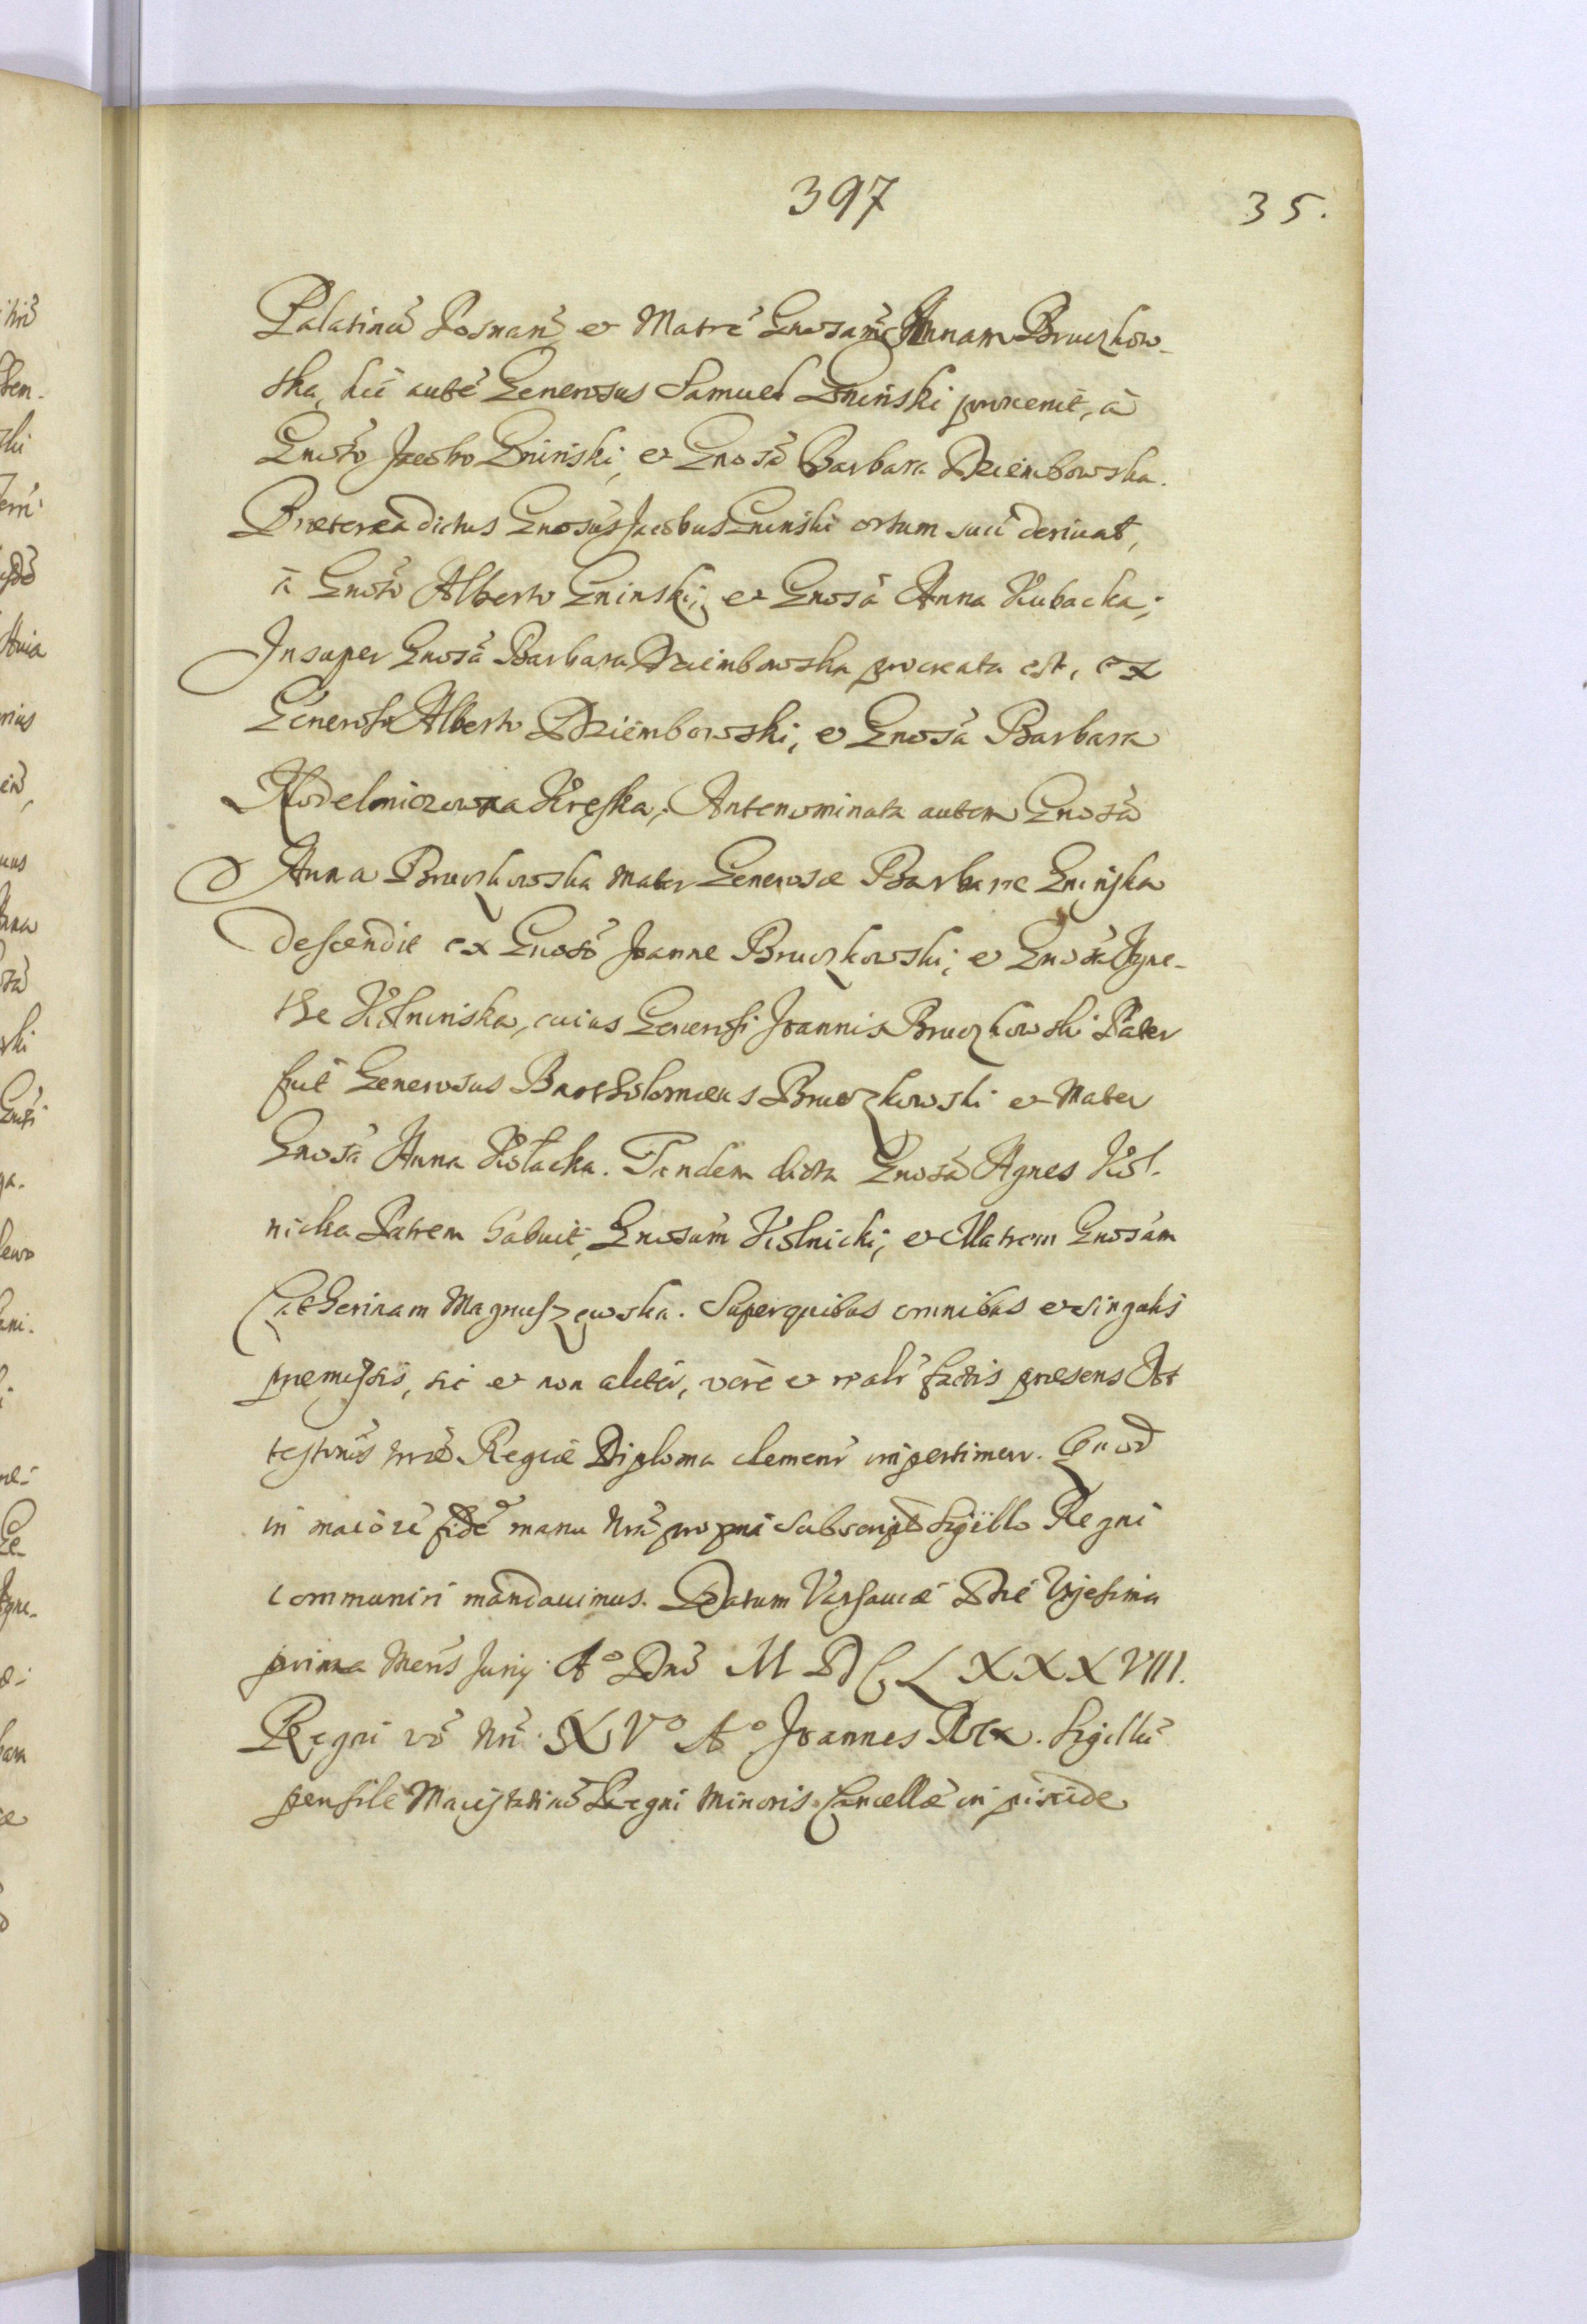 397
35.
Palatinũ Posnan̄ et Matrē Gnosam̄ Annam Bruczkow-
ska, hic autē Generosus Samuel Gninski provenit, à
Gnoso Jacobo Gninski, et Gnosa Barbara Dziembowska.
Præterea dictus Gnosus Jacobus Gninski ortum suū derivat,
à Gnoso Alberto Gninski, et Gnosa Anna Kubacka;
Insuper Gnosa Barbara Dziembowska procreata est, ex
Generoso Alberto Dziembowski, et Gnosa Barbara
Kręska, Antenominata autem Gnosa
Anna Bruczkowska Mater Generosæ Barbaræ Gninska
descendit ex Gnoso Joanne Bruczkowski, et Gnosa Agne-
the Kolninska, cuius Generosi Joannis Bruczkowski Pater
fuit Generosus Bartholomæus Bruczkowski et Mater
Gnosa Anna Kołacka. Tandem dicta Gnosa Agnes Kol-
nicka Patrem habuit, Gnosum Kolnicki, et Matrem Gnosam
Catherinam Magnuszewska. Super quibus omnibus et singulis
præmissis, sic et non aliter, verè et realr̄ factis præsens At
testonis nræ Regiæ Diploma clementr̄ impertimur. Quod
in maiorē fidē manu nrā propria subscript Sigillo Regni
communiri mandavimus. Datum Varsaviæ Die Vigesima
prima Mens̄ Junÿ. Ao Dnī M DC LXXXVIII.
Regni vō Nrī XVo Ao Joannes Rex. Sigillū
pensile Maiestatīcū Regni Minoris Cancellæ in pixide